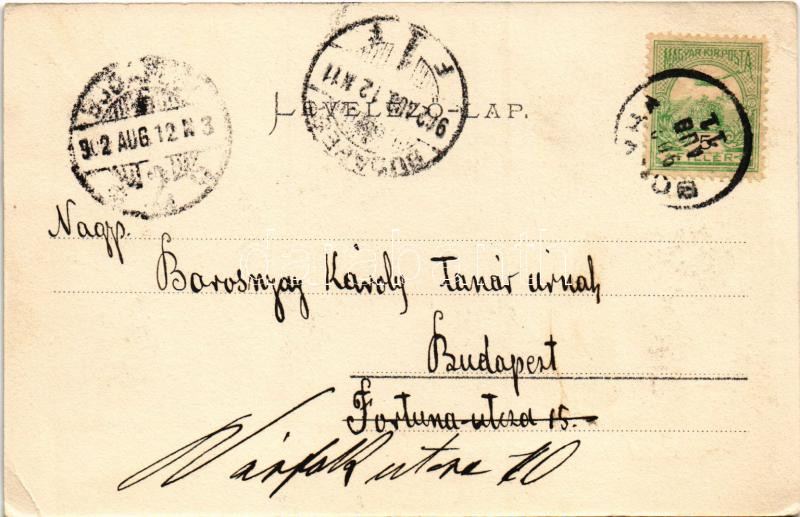 MAGYAR KIR. POSTA
5
FILLÉR
902 AUG. 12 N 3
BUDAPEST
902 AUG 12 N 11
LEVELEZŐ-LAP.
Nagys.
Borosnyay Károly Tanár úrnak
Budapest
Fortuna-utcza 15.
Várfok utcza 10
darabanth